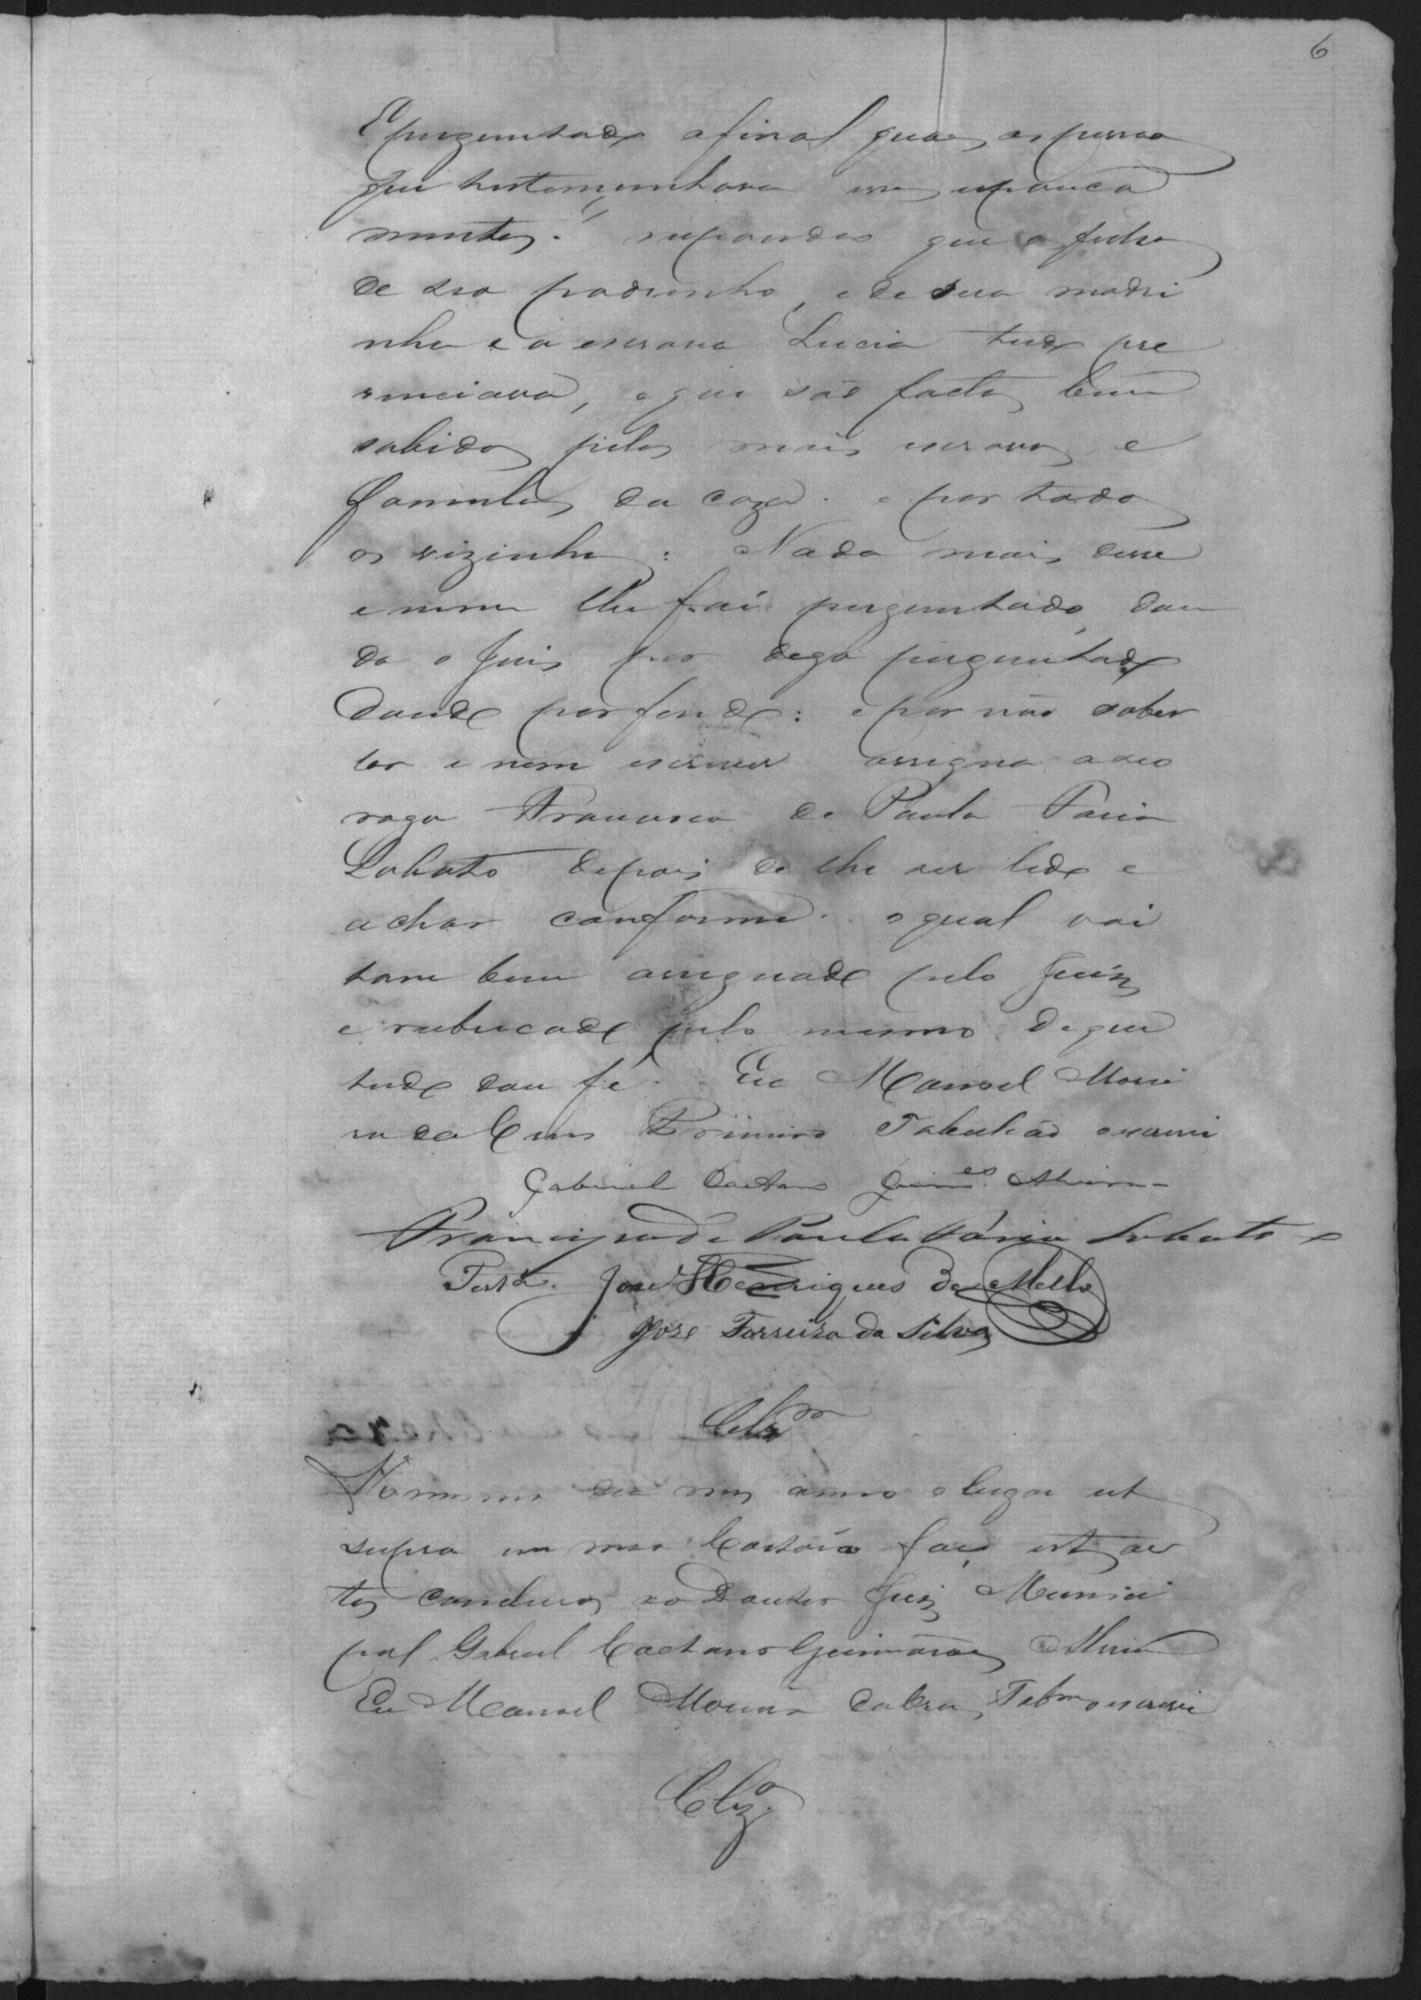 6
E perguntado afinal quaes as pessoas
que testemunhava esses espanca
mentos. respondeo que o filho
de seo padrinho, e de sua madri
nha e a escrava Lucia tudo pre
senciava, e que são factos bem
sabidos pelos mais escravos e
familias da caza. e por todos
os vizinhos: Nada mais disse
e nem lhe foi perguntado, dan
do o Juis por dego perguntado
dando por findo: e por não saber
ler e nem escrever assigna a seo
rogo Francisco de Paula Faria
Lobato depois de lhe ser lido e
achar conforme. o qual vai
tam bem assignado pelo Juiz
e rubricado pelo mesmo. De que
tudo dou fé. Eu Manoel Morei
ra da Cruz Primeiro Tabelião escrevi
Gabriel Caetano Guim.es
Francisco de Paula Fária Lobato
Test.a José Henriques de Mello
José Ferreira da Silva
Clz.m
No mesmo dia mes anno e lugar ut
supra em meo Cartorio faço estes au
tos concluzos ao Doutor Juiz Munici
pal Gabriel Caetano Guimarães
Eu Manoel Moreira Tab.m escrevi
Clz.o